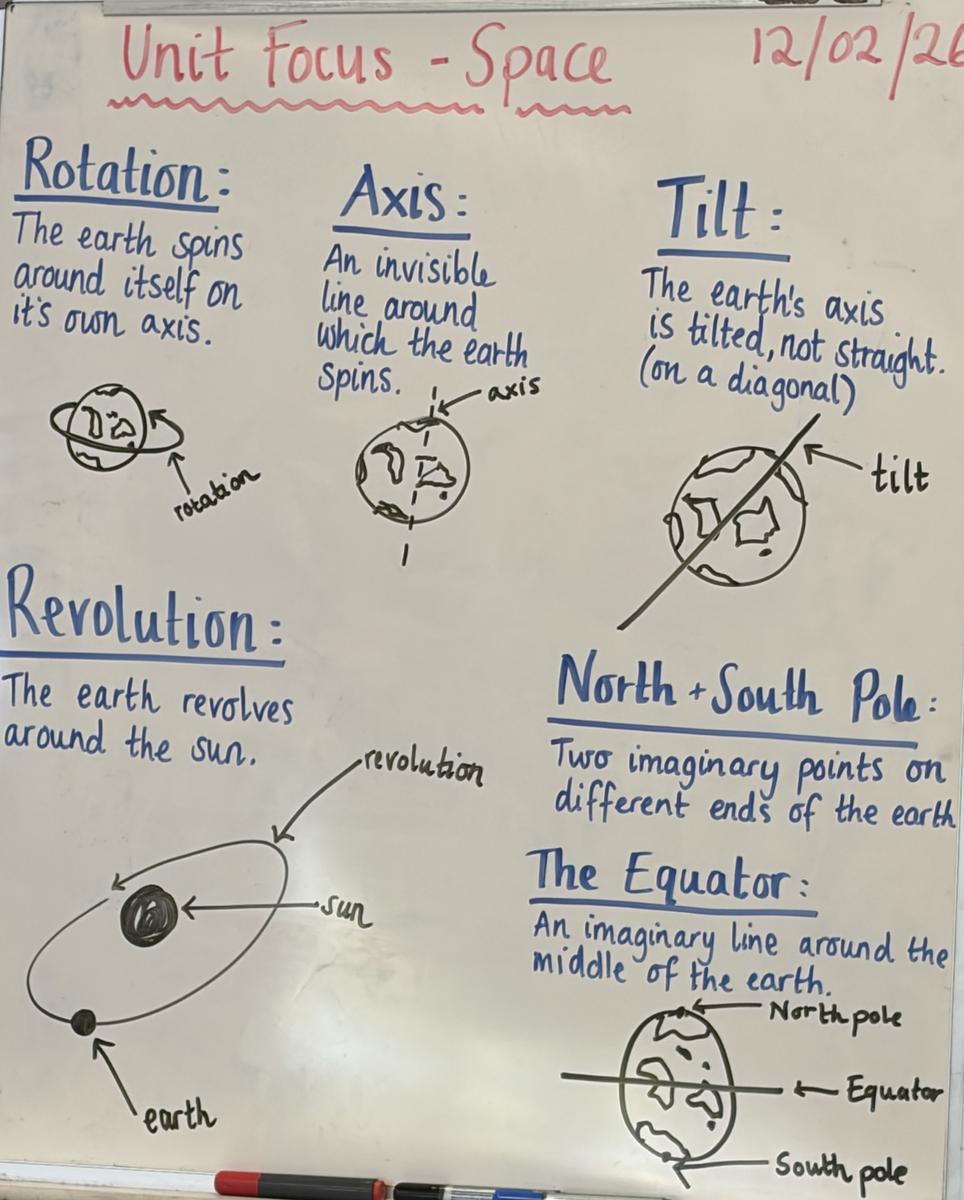 Unit Focus - Space
12/02/26
Rotation:
The earth spins
around itself on
it's own axis.
rotation
Axis:
An invisible
line around
which the earth
spins.
axis
Tilt:
The earth's axis
is tilted, not straight.
(on a diagonal)
tilt
Revolution:
The earth revolves
around the sun.
revolution
sun
earth
North + South Pole:
Two imaginary points on
different ends of the earth
The Equator:
An imaginary line around the
middle of the earth.
North pole
Equator
South pole